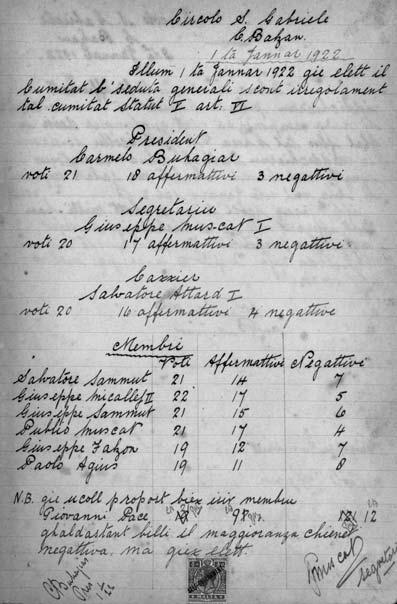 Circolo S. Gabriele
C. Balzan.
1 ta Jannar 1922
Illum 1 ta Jannar 1922 gie elett il
Cumitat b'seduta generali scont irregolament
tal cumitat Statut I art. VI
President
Carmelo Buhagiar
voti 21 18 affermattivi 3 negattivi
Segretariu
Giuseppe Muscat I
voti 20 17 affermattivi 3 negattivi
Caxxier
Salvatore Attard I
voti 20 16 affermattivi 4 negattivi
Membri
Voti Affermattivi Negattivi
Salvatore Sammut 21 14 7
Giuseppe Micallef II 22 17 5
Giuseppe Sammut 21 15 6
Publio Muscat 21 17 4
Giuseppe Falzon 19 12 7
Paolo Agius 19 11 8
N.B. gie ucoll propost biex iixu membru
Giovanni Pace 9 12
ghaldastant billi il maggioranza chienet
negattiva, ma giex elett.
C Buhagiar
Pres
1-1-22
P Muscat
Segretario
MALTA